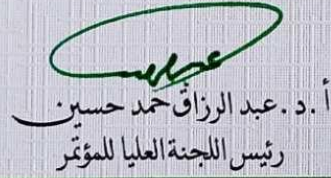 أ. د. عبد الرزاق حمد حسين
رئيس اللجنة العليا للمؤتمر